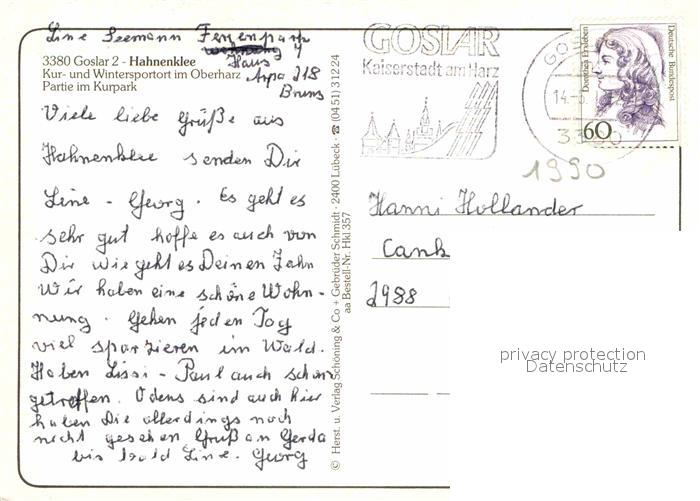 Line Seemann Ferienpark
wohnung 4
Haus
Apa 218
Bruns
3380 Goslar 2 - Hahnenklee
Kur- und Wintersportort im Oberharz
Partie im Kurpark
Viele liebe Grüße aus
Hahnenklee senden Dir
Line - Georg. Es geht es
sehr gut hoffe es auch von
Dir wie geht es Deinen Zahn
Wir haben eine schöne Wohn-
nung. Gehen jeden Tag
viel sparzieren im Wald.
Haben Lissi - Paul auch schon
getroffen. Odens sind auch hier
haben Die allerdings noch
nicht gesehen Gruß an Gerda
bis bald Line. Georg
© Herst. u. Verlag Schöning & Co + Gebrüder Schmidt · 2400 Lübeck · ☎ (04 51) 3 12 24
aa Bestell-Nr. Hkl 357
GOSLAR
Kaiserstadt am Harz
GO
14.-5.
33 00
Dorothea Erxleben
Deutsche Bundespost
60
1990
Hanni Hollander
Cank
2988
privacy protection
Datenschutz